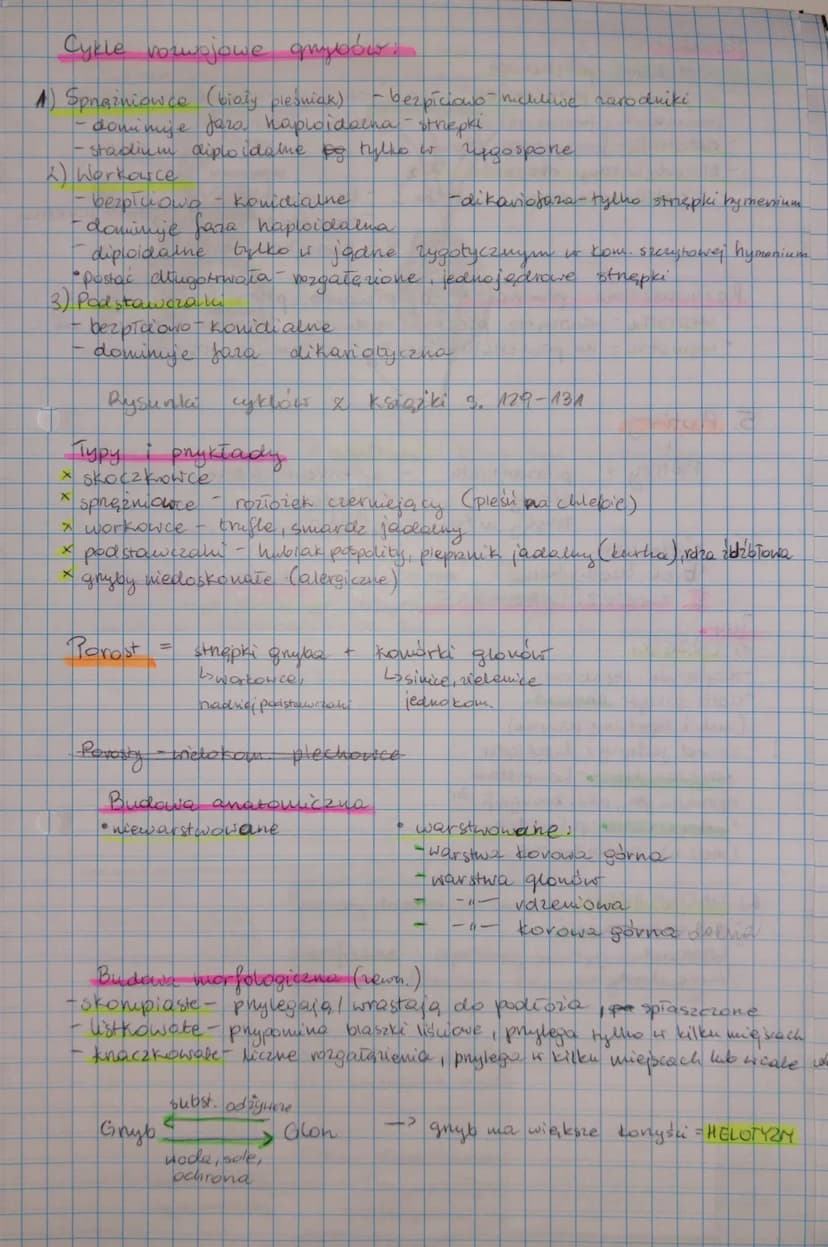 Cykle rozwojowe grzybów:
1) Sprzężniowce (biały pleśniak) - bezpłciowo - nieliczne zarodniki
- dominuje faza haploidalna - strzępki
- stadium diploidalne tylko w zygosporze
2) Workowce
- bezpłciowo - konidialne - dikariofaza - tylko strzępki hymenium
- dominuje faza haploidalna
- diploidalne tylko w jądrze zygotycznym w kom. szczytowej hymenium
• postać długotrwała - rozgałęzione, jednojądrowe strzępki
3) Podstawczaki
- bezpłciowo - konidialne
- dominuje faza dikariotyczna
Rysunki cyklów z książki s. 129-131
Typy i przykłady
x skoczkowce
x sprzężniowce - rozłożek czerniejący (pleśń na chlebie)
x workowce - trufle, smardz jadalny
x podstawczaki - hubiak pospolity, pieprznik jadalny (kurka), rdza źdźbłowa
x grzyby niedoskonałe (alergiczne)
Porost = strzępki grzyba + komórki glonów
↳ workowce, ↳ sinice, zielenice
rzadziej podstawczaki jednokom.
Porosty - wielokom. plechowce
Budowa anatomiczna
• niewarstwowane • warstwowane:
- warstwa korowa górna
- warstwa glonów
- -"- rdzeniowa
- -"- korowa górna dolna
Budowa morfologiczna (zewn.)
- skorupiaste - przylegają/wrastają do podłoża, spłaszczone
- listkowate - przypomina blaszki liściowe, przylega tylko w kilku miejscach
- krzaczkowate - liczne rozgałęzienia, przylega w kilku miejscach lub wcale
subst. odżywcze
Grzyb Glon -> grzyb ma większe korzyści = HELOTYZM
woda, sole,
ochrona